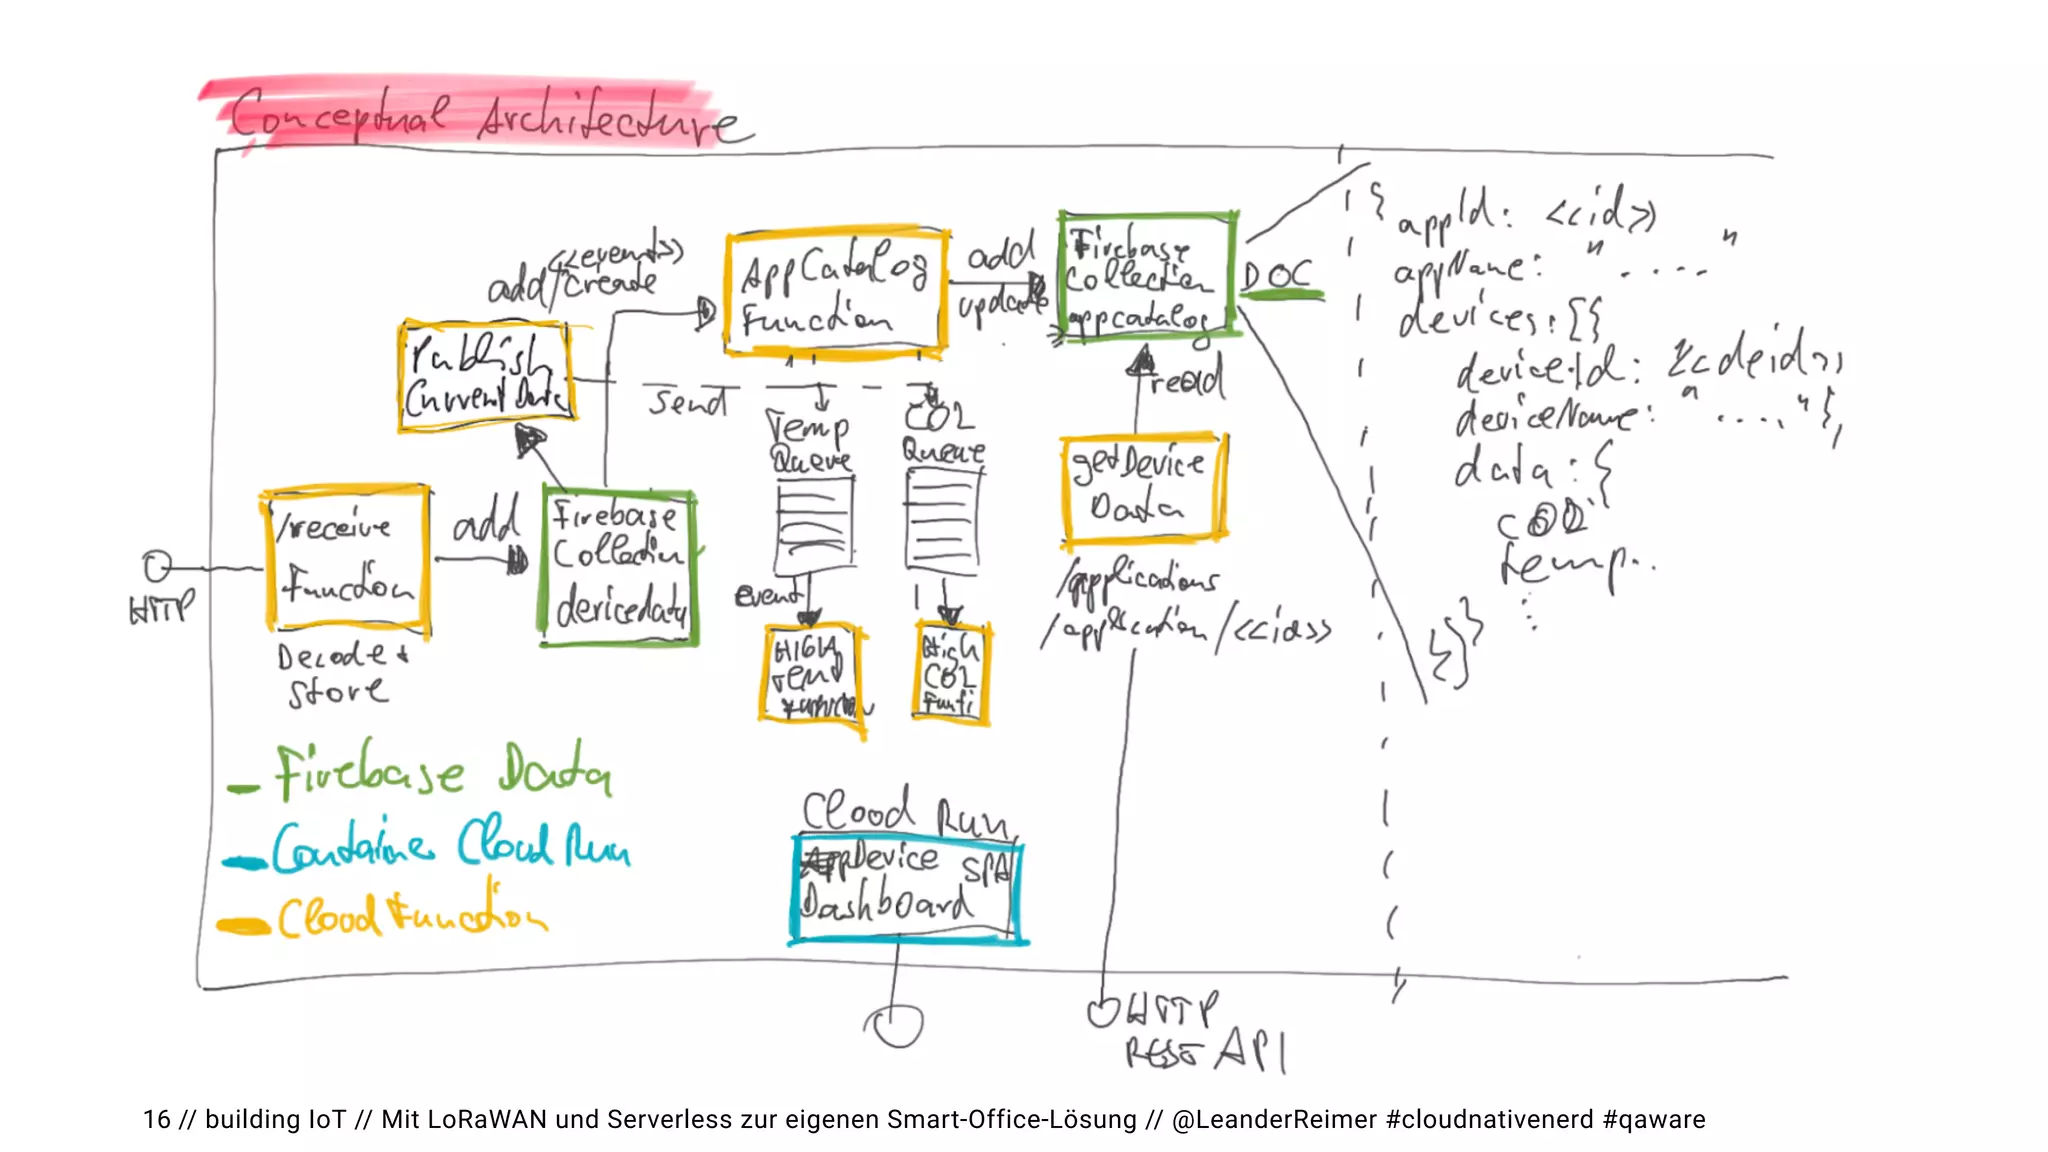 Conceptual Architecture
HTTP
/receive
Function
Decode +
Store
add
Firebase
Collection
devicedata
Publish
Current Data
<<event>>
add/create
send
AppCatalog
Function
add
update
Firebase
Collection
appcatalog
DOC
Temp
Queue
CO2
Queue
event
HIGH
TEMP
Function
High
CO2
Functi
read
getDevice
Data
/applications
/application/<<id>>
HTTP
REST API
Cloud Run
Device SPA
Dashboard
{
appId: <<id>>
appName: " .... "
devices: [{
deviceId: <<deid>>,
deviceName: " .... ",
data: {
CO2
temp..
:
}
}]
}
- Firebase Data
- Container Cloud Run
- Cloud Function
16 // building IoT // Mit LoRaWAN und Serverless zur eigenen Smart-Office-Lösung // @LeanderReimer #cloudnativenerd #qaware